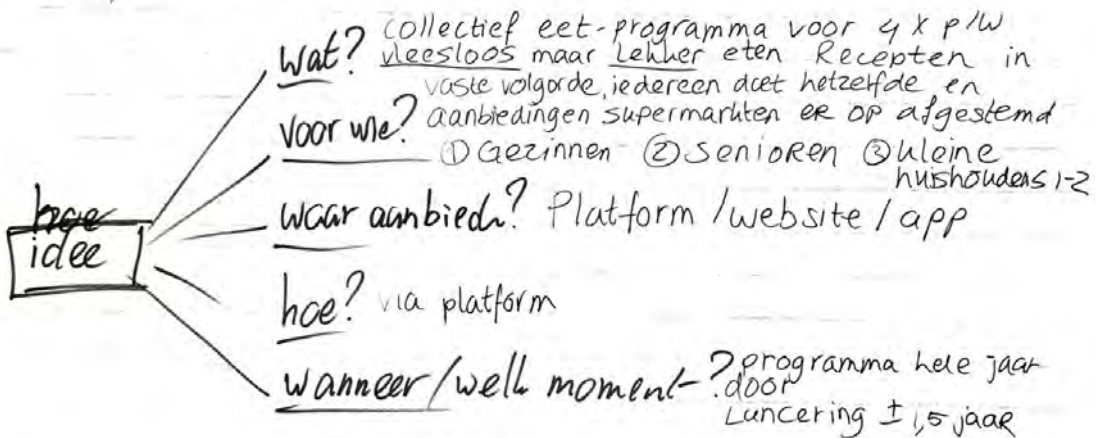 wat? collectief eet-programma voor 4 x p/w
vleesloos maar lekker eten Recepten in
vaste volgorde, iedereen doet hetzelfde en
voor wie? aanbiedingen supermarkten er op afgestemd
① Gezinnen ② Senioren ③ kleine
huishoudens 1-2
waar aanbieden? Platform / website / app
hoe
idee
hoe? via platform
wanneer / welk moment? programma hele jaar
door
Luncering ± 1,5 jaar